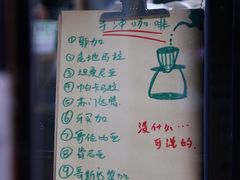 手冲咖啡
①耶加
②危地马拉
③坦桑尼亚
④帕卡马拉
⑤苏门达腊
⑥牙买加
⑦哥伦比亚
⑧肯尼亚
⑨哥斯达黎加
没什么...
可选的.